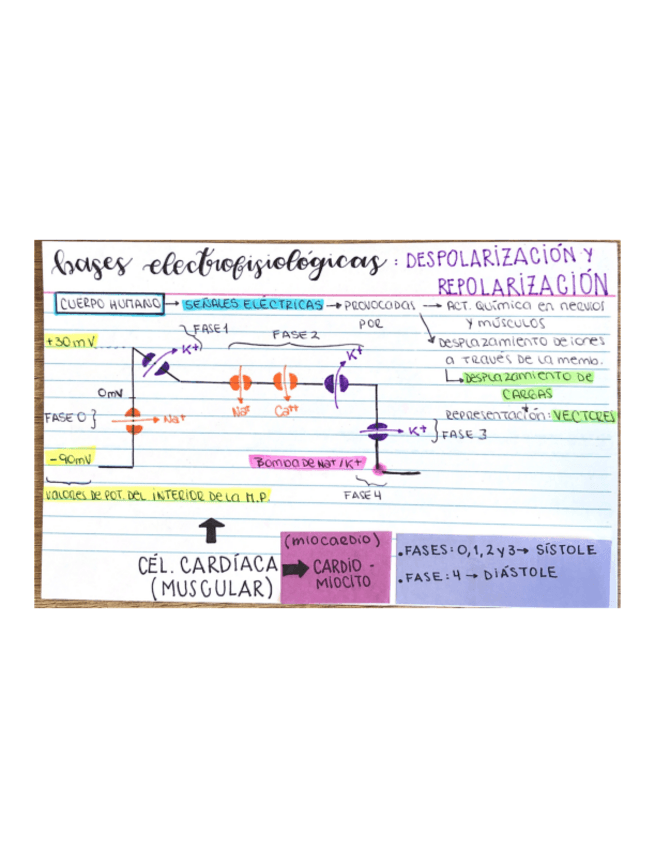 bases electrofisiológicas : DESPOLARIZACIÓN Y
REPOLARIZACIÓN
CUERPO HUMANO → SEÑALES ELÉCTRICAS → PROVOCADAS → ACT. QUÍMICA EN NERVIOS
POR
Y MÚSCULOS
DESPLAZAMIENTO DE IONES
A TRAVÉS DE LA MEMB.
DESPLAZAMIENTO DE
CARGAS
REPRESENTACIÓN: VECTORES
FASE 1
FASE 2
+30 mV
K+
K+
0mV
Na+
Ca++
FASE 0}
Na+
K+ } FASE 3
-90mV
BOMBA DE Na+/K+
FASE 4
VALORES DE POT. DEL INTERIOR DE LA M.P.
CÉL. CARDÍACA
(MUSCULAR)
(MIOCARDIO)
CARDIO-
MIOCITO
• FASES: 0, 1, 2 y 3 → SÍSTOLE
• FASE: 4 → DIÁSTOLE